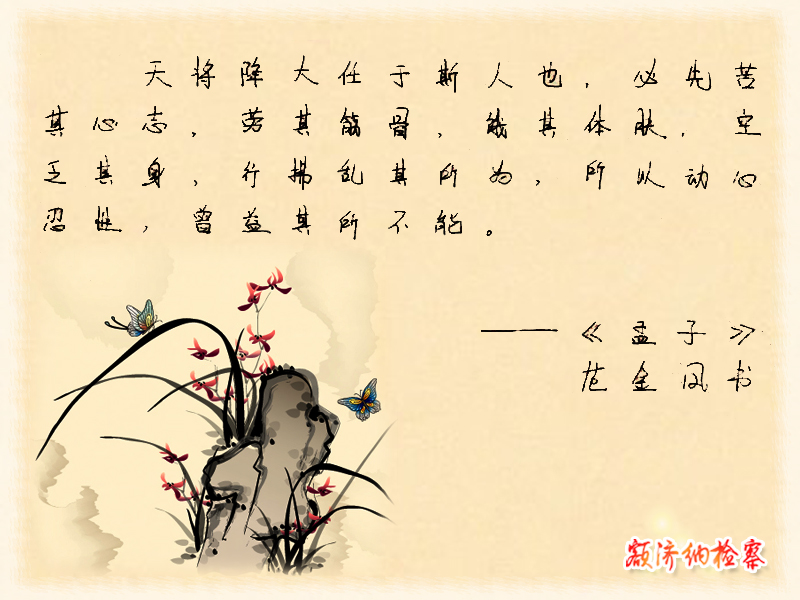 天将降大任于斯人也，必先苦
其心志，劳其筋骨，饿其体肤，空
乏其身，行拂乱其所为，所以动心
忍性，曾益其所不能。
——《孟子》
范金凤书
额济纳检察